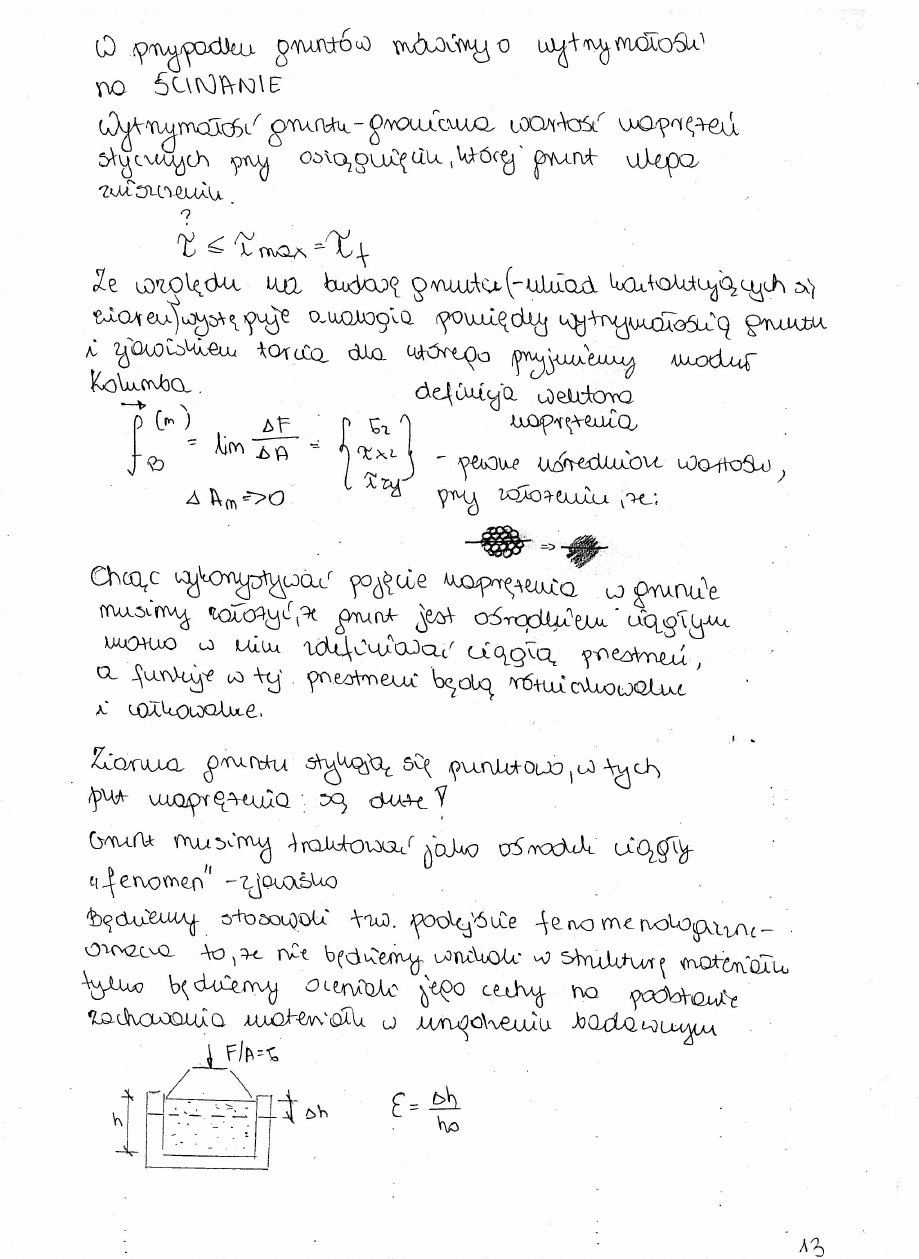 W przypadku gruntów mówimy o wytrzymałości
na ŚCINANIE
Wytrzymałość gruntu - graniczna wartość naprężeń
stycznych przy osiągnięciu, której grunt ulega
zniszczeniu.
?
τ ≤ τmax = τf
Ze względu na budowę gruntu (-układ kontaktujących się
ziaren) występuje analogia pomiędzy wytrzymałością gruntu
i zjawiskiem tarcia dla którego przyjmiemy moduł
Kolumba.
definicja wektora
naprężenia
p(m)B = lim ΔF/ΔA = {σz τxz τzy}
ΔAm => 0
- pewne uśrednione wartości,
przy założeniu, że:
=>
Chcąc wykorzystywać pojęcie naprężenia w gruncie
musimy założyć, że grunt jest ośrodkiem ciągłym
można w nim zdefiniować ciągłą przestrzeń,
a funkcje w tej przestrzeni będą różniczkowalne
i całkowalne.
Ziarna gruntu stykają się punktowo, w tych
pkt naprężenia są duże!
Grunt musimy traktować jako ośrodek ciągły
"fenomen" - zjawisko
Będziemy stosowali tzw. podejście fenomenologiczne -
oznacza to, że nie będziemy wnikali w strukturę materiału
tylko będziemy oceniali jego cechy na podstawie
zachowania materiału w urządzeniu badawczym
F/A=σ
h
Δh
ε = Δh/h0
13